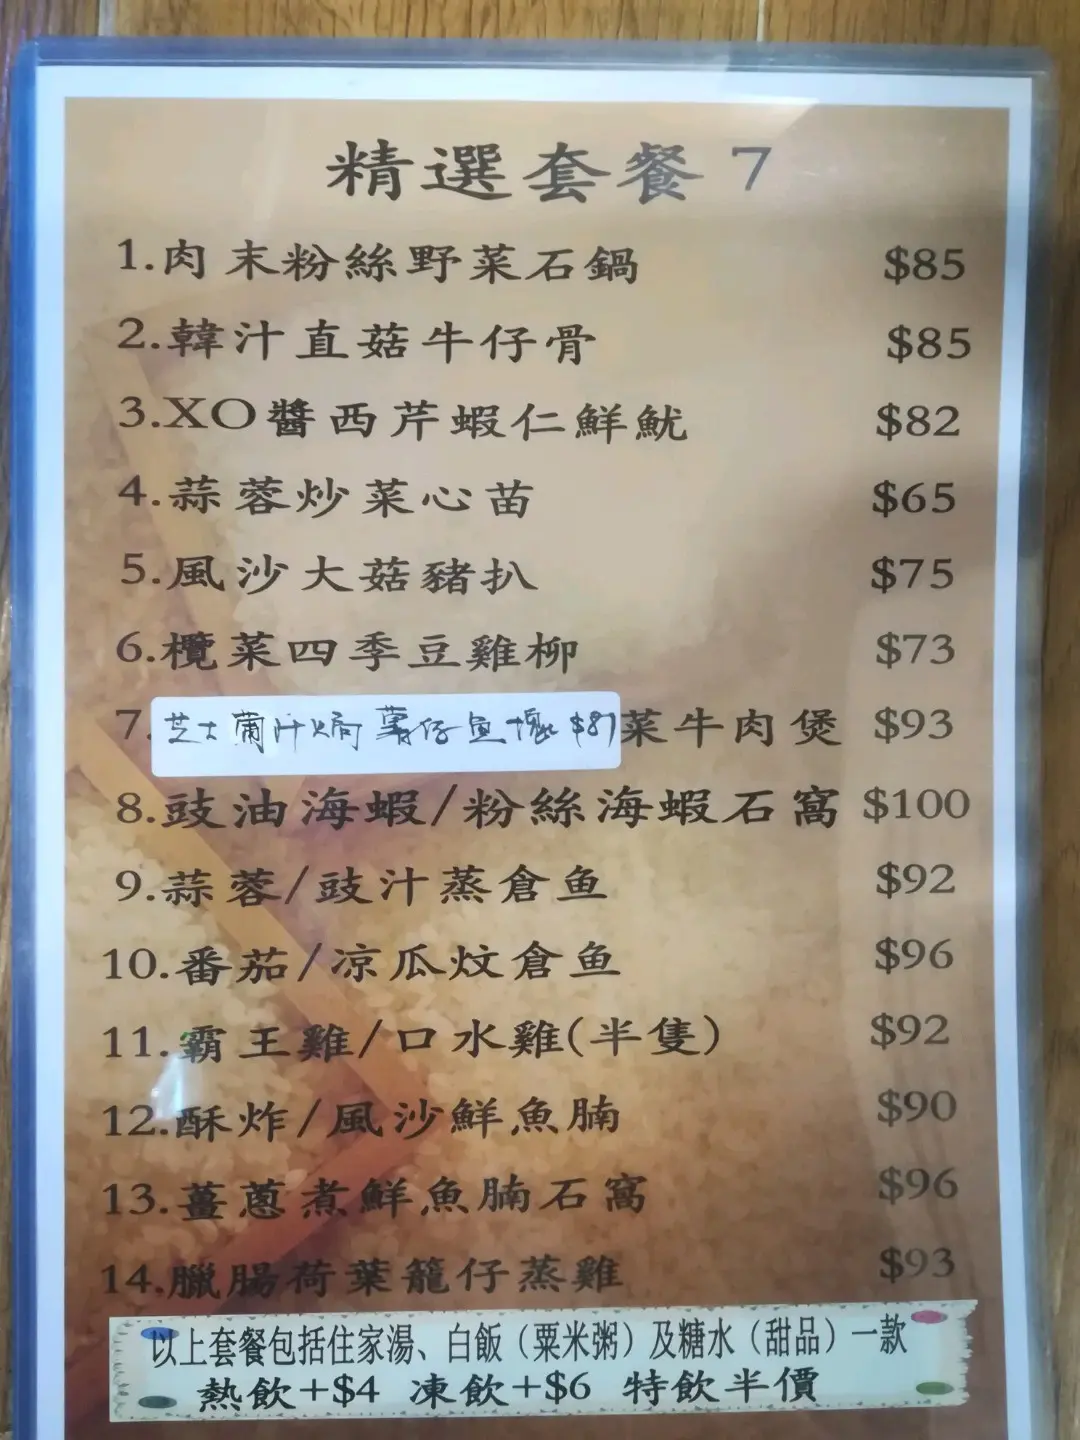 精選套餐 7
1.肉末粉絲野菜石鍋 $85
2.韓汁直菇牛仔骨 $85
3.XO醬西芹蝦仁鮮魷 $82
4.蒜蓉炒菜心苗 $65
5.風沙大菇豬扒 $75
6.欖菜四季豆雞柳 $73
7.芝士葡汁焗薯仔魚塊 $87 菜牛肉煲 $93
8.豉油海蝦/粉絲海蝦石窩 $100
9.蒜蓉/豉汁蒸倉鱼 $92
10.番茄/凉瓜炆倉鱼 $96
11.霸王雞/口水雞(半隻) $92
12.酥炸/風沙鮮魚腩 $90
13.薑蔥煮鮮魚腩石窩 $96
14.臘腸荷葉籠仔蒸雞 $93
以上套餐包括住家湯、白飯（粟米粥）及糖水（甜品）一款
熱飲+$4 凍飲+$6 特飲半價